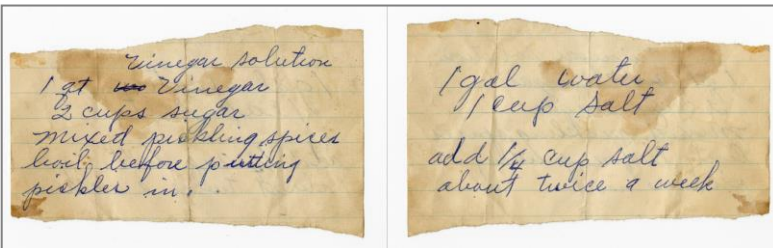 Vinegar solution
1 qt Vinegar
2 cups sugar
mixed pickling spices
boil before putting
pickles in.
1 gal water
1 cup salt
add 1/4 cup salt
about twice a week